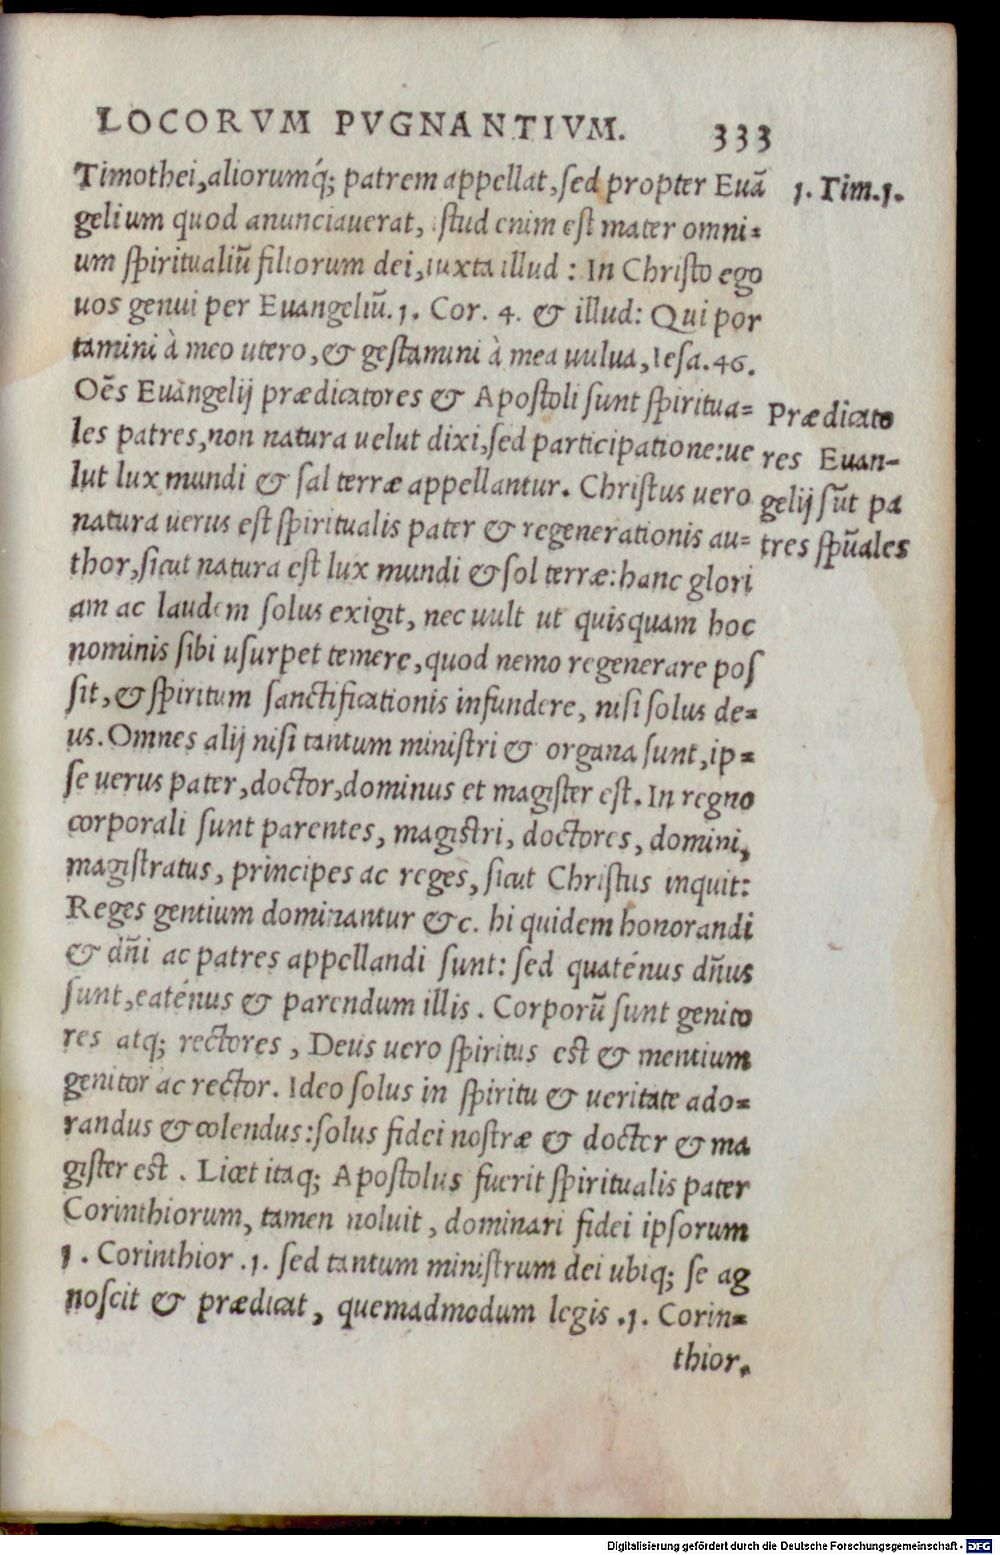 LOCORVM PVGNANTIVM. 333
Timothei, aliorumq́; patrem appellat, sed propter Euā
1. Tim. 1.
gelium quod anunciauerat, istud enim est mater omni=
um spiritualiū filiorum dei, iuxta illud : In Christo ego
uos genui per Euangeliū. 1. Cor. 4. & illud: Qui por
tamini à meo utero, & gestamini à mea uulua, Iesa. 46.
Oēs Euāngelij prædicatores & Apostoli sunt spiritua=
Prædicato
les patres, non natura uelut dixi, sed participatione: ue
res Euan-
lut lux mundi & sal terræ appellantur. Christus uero
gelij sūt pa
natura uerus est spiritualis pater & regenerationis au=
tres spūales
thor, sicut natura est lux mundi & sol terræ: hanc glori
am ac laudem solus exigit, nec uult ut quisquam hoc
nominis sibi usurpet temere, quod nemo regenerare pos
sit, & spiritum sanctificationis infundere, nisi solus de=
us. Omnes alij nisi tantum ministri & organa sunt, ip=
se uerus pater, doctor, dominus et magister est. In regno
corporali sunt parentes, magistri, doctores, domini,
magistratus, principes ac reges, sicut Christus inquit:
Reges gentium dominantur &c. hi quidem honorandi
& dn̄i ac patres appellandi sunt: sed quaténus dn̄us
sunt, eaténus & parendum illis . Corporū sunt genito
res atq; rectores , Deus uero spiritus est & mentium
genitor ac rector. Ideo solus in spiritu & ueritate ado=
randus & colendus: solus fidei nostræ & doctor & ma
gister est . Licet itaq; Apostolus fuerit spiritualis pater
Corinthiorum, tamen noluit , dominari fidei ipsorum
1 . Corinthior .1. sed tantum ministrum dei ubiq; se ag
noscit & prædicat, quemadmodum legis .1. Corin=
thior.
Digitalisierung gefördert durch die Deutsche Forschungsgemeinschaft - DFG